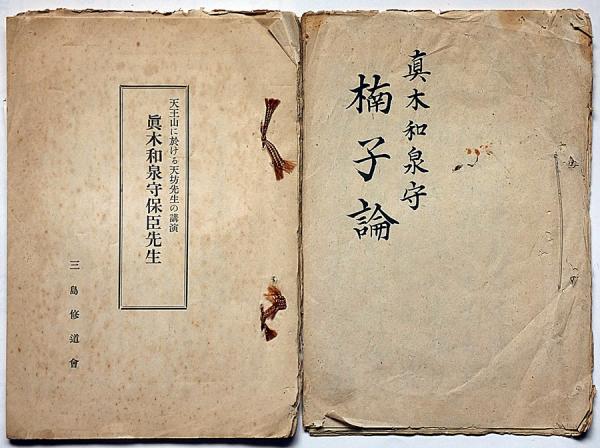 天王山に於ける天坊先生の講演
眞木和泉守保臣先生
三島修道會
真木和泉守
楠子論